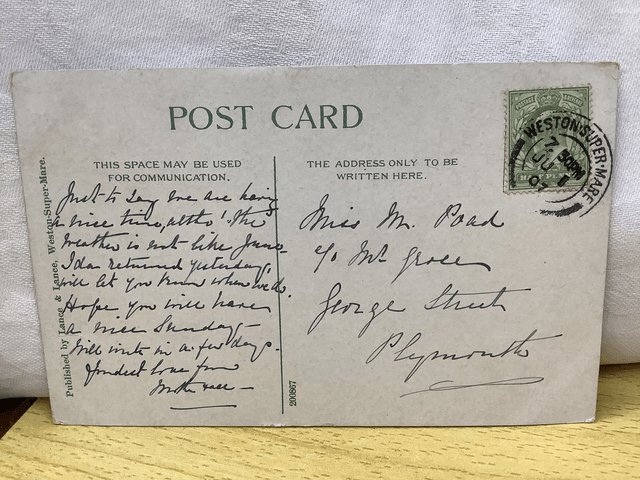 POST CARD
THIS SPACE MAY BE USED
FOR COMMUNICATION.
THE ADDRESS ONLY TO BE
WRITTEN HERE.
Published by Lance & Lance, Weston-Super-Mare.
Just to say we are having
a nice time, altho' the
weather is not like June
Ida returned yesterday,
will let you know when we do.
Hope you will have
a nice Sunday-
Will write in a few days.
fondest love from
Mother
200867
Miss M. Poad
c/o Mr Grose
George Street
Plymouth
WESTON-SUPER-MARE
7
JU 1
07